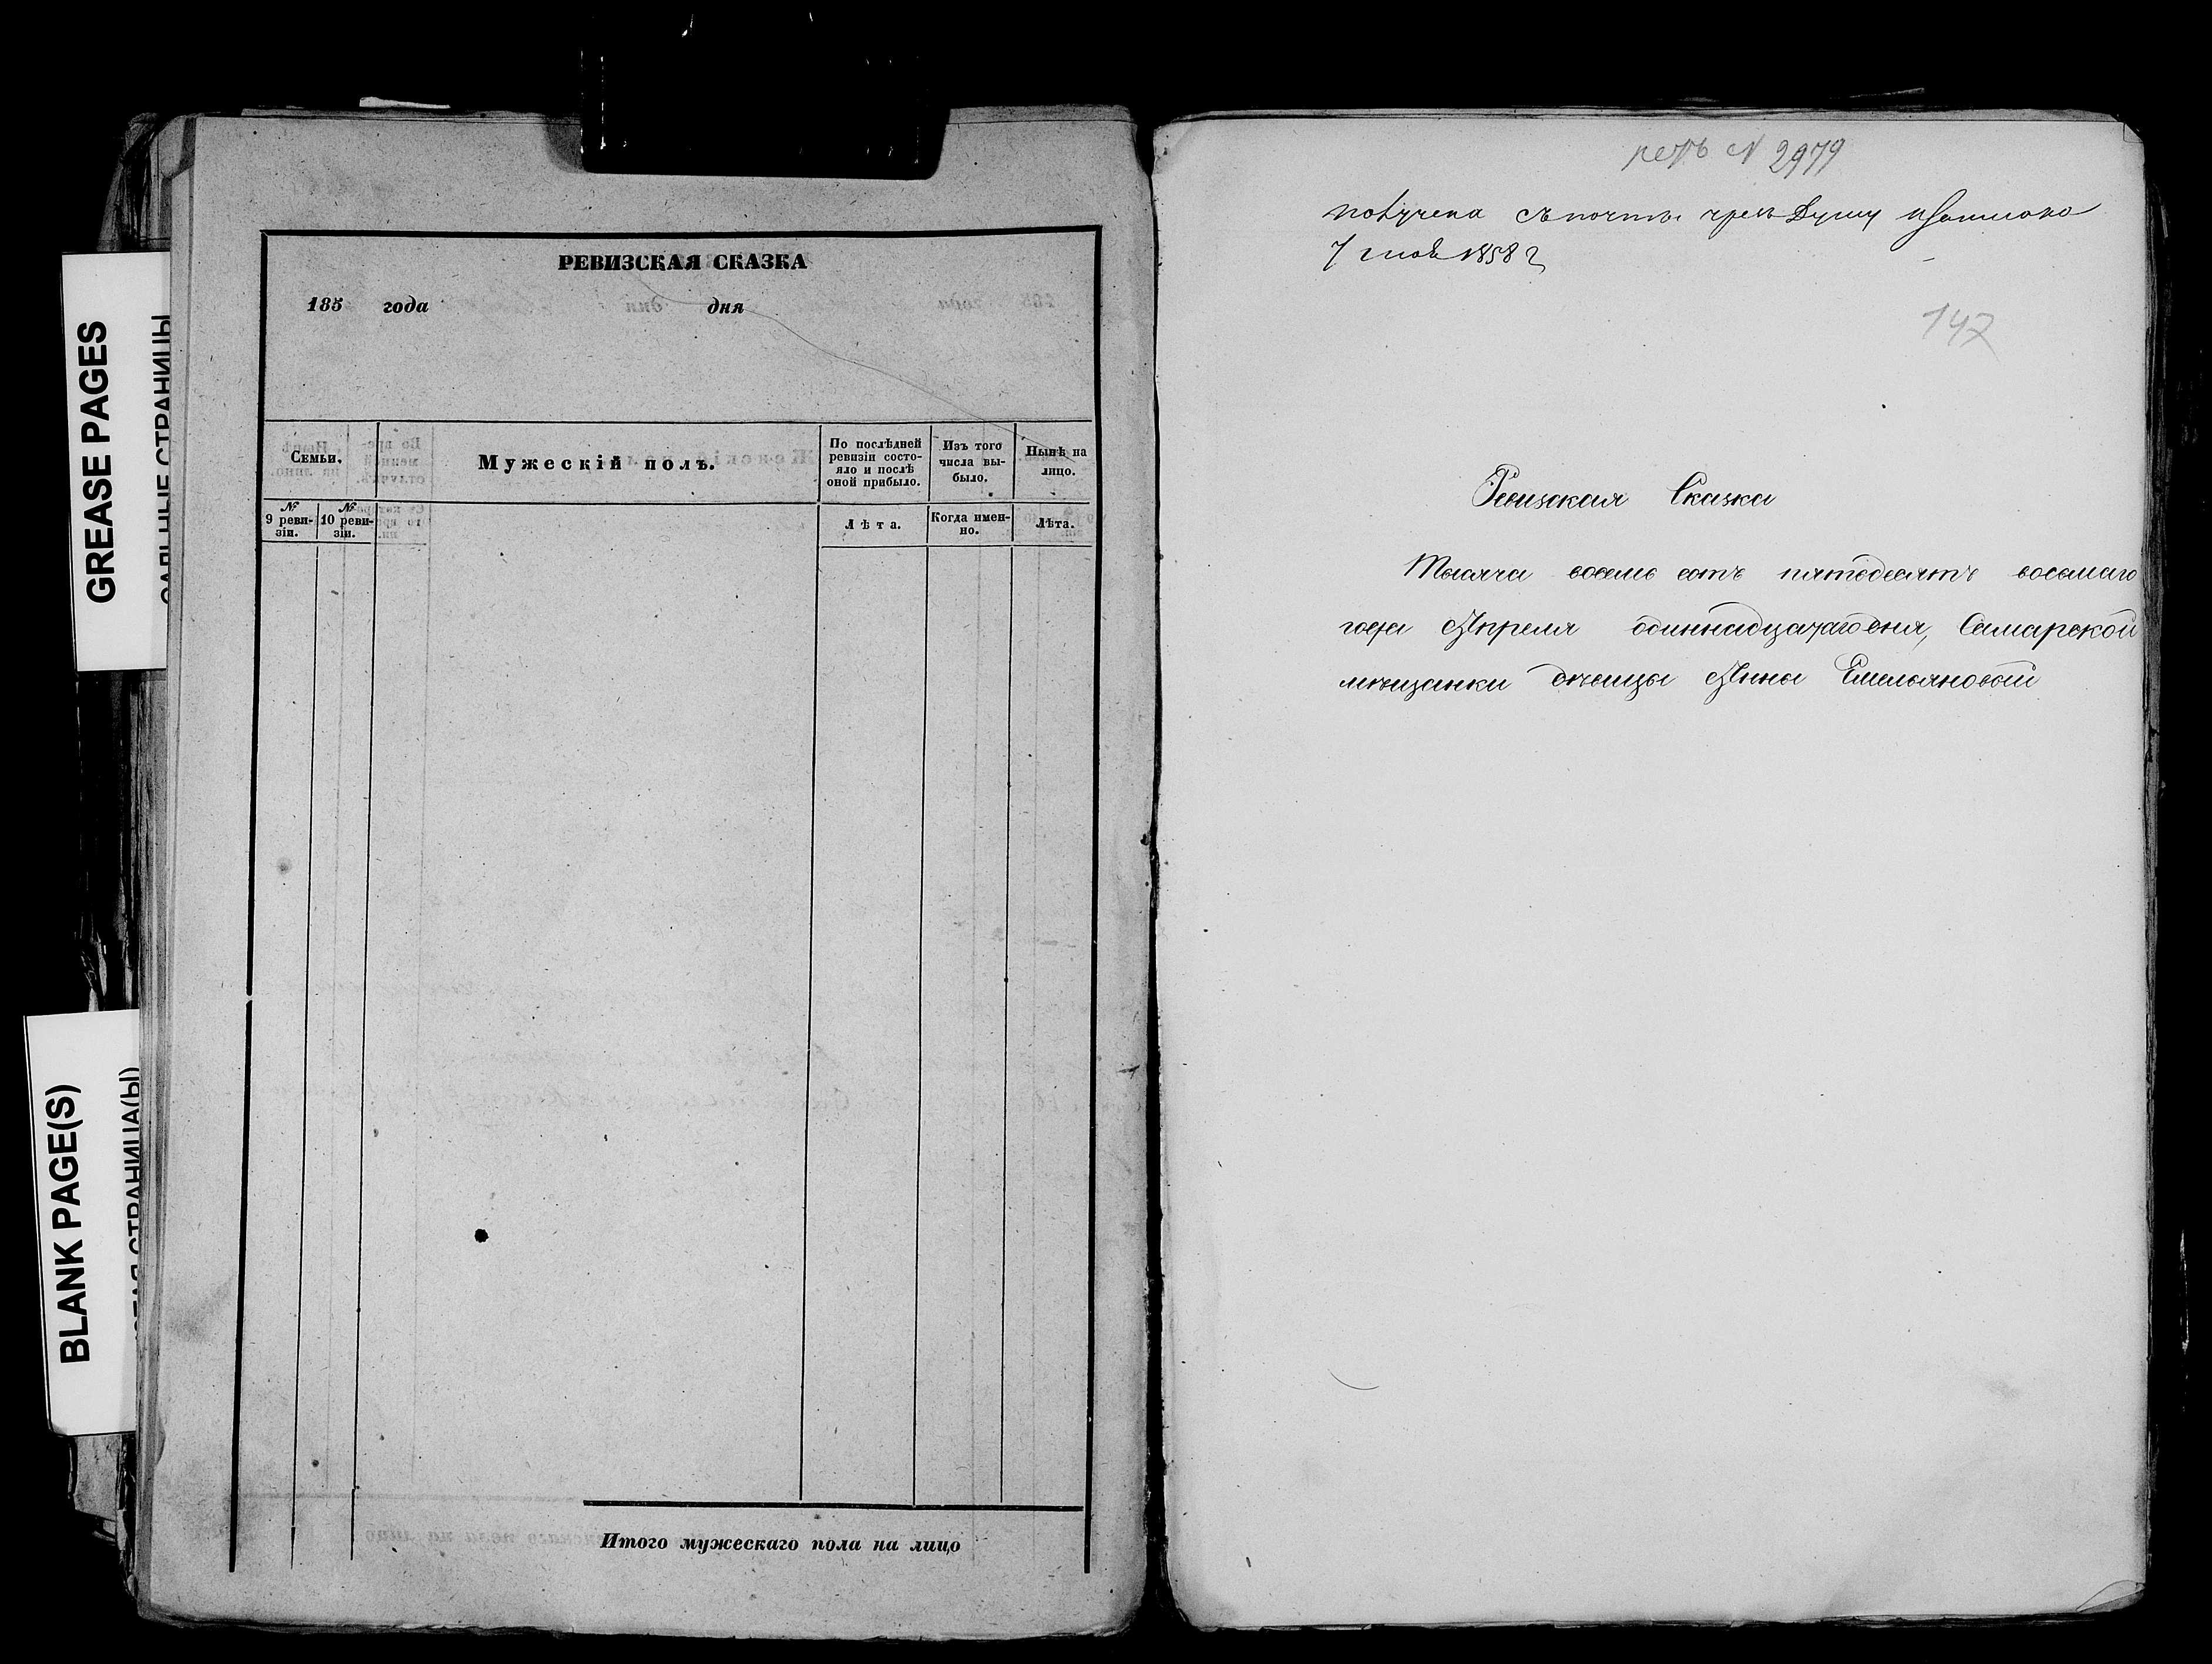 GREASE PAGES
BLANK PAGE(S)
РЕВИЗСКАЯ СКАЗКА
185 года дня
Семьи.
Мужескій полъ.
По послѣдней ревизіи состо-
яло и послѣ
оной прибыло.
Изъ того
числа вы-
было.
Нынѣ на
лицо.
№ 9 реви-
зіи.
№ 10 реви-
зіи.
Лѣта.
Когда имен-
но.
Лѣта.
Итого мужескаго пола на лицо
№ 2979
получена съ почты чрезъ Думу
7 1858 г
147
Ревизская Сказка
Тысяча восемь сотъ пятьдесятъ восьмаго
года Апреля одиннадцатаго дня, Самарской
мѣщанки дѣвицы Анны Емельяновой